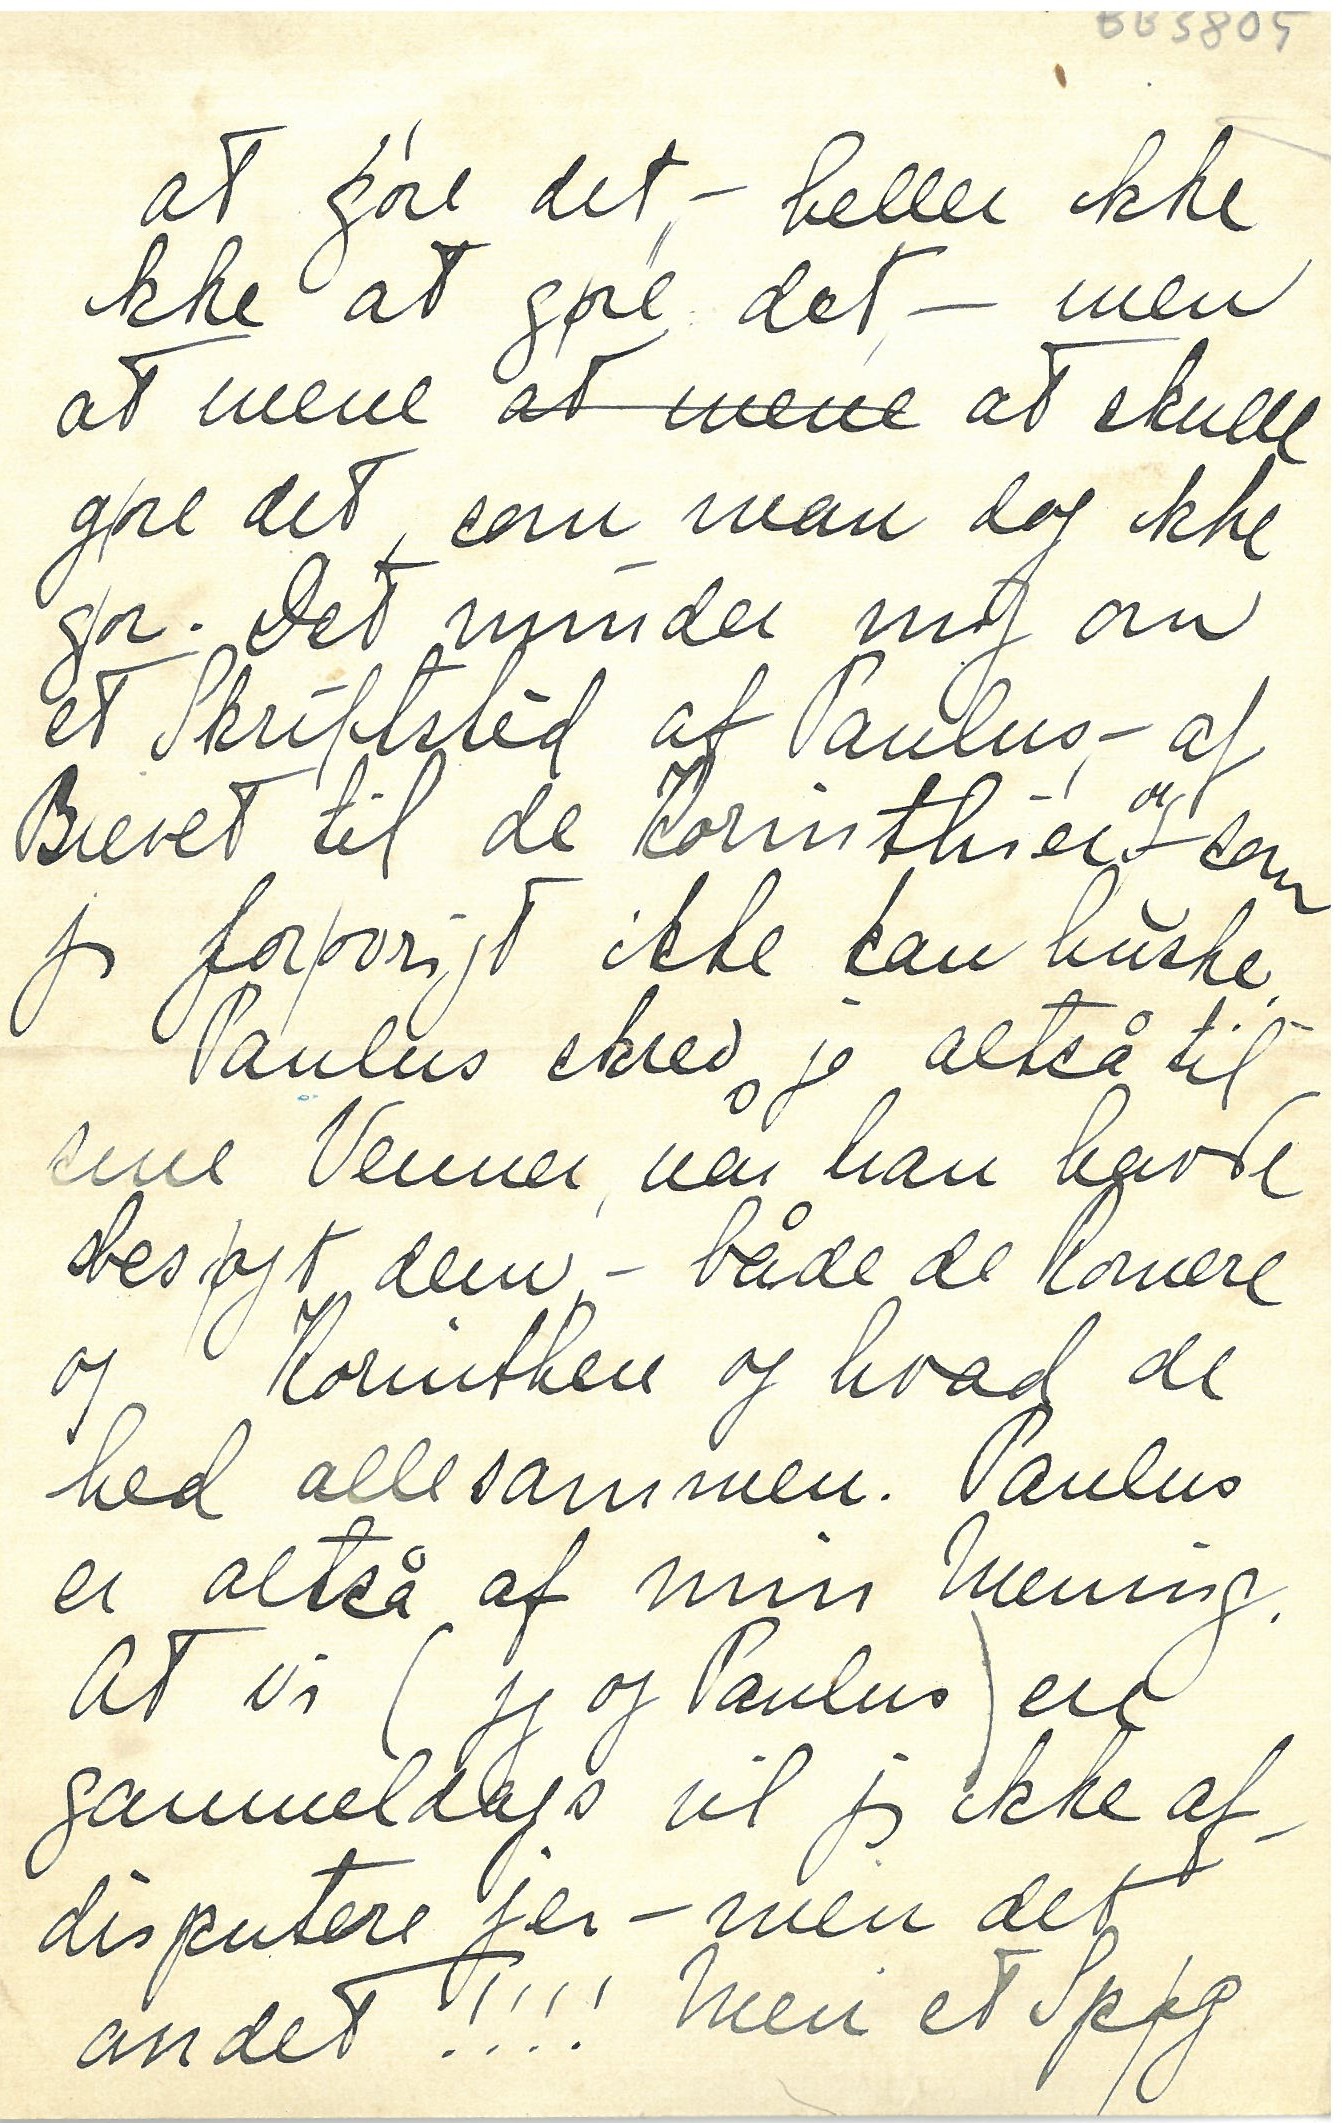 BB3805
at gøre det, – heller ikke
ikke at gøre det, – men
at mene at mene at skulle
gøre det, som man dog ikke
gør. Det minder mig om
et Skriftsted af Paulus, – af
Brevet til de Korinthier, – og som
jeg forøvrigt ikke kan huske.
Paulus skrev jo altså til
sine Venner, når han havde
besøgt dem, – både de Romere
og Korinthere og hvad de
hed allesammen. Paulus
er altså af min Mening.
At vi (jeg og Paulus) ere
gammeldags vil jeg ikke af-
disputere jer – men det
andet!!!! Men et Spøg